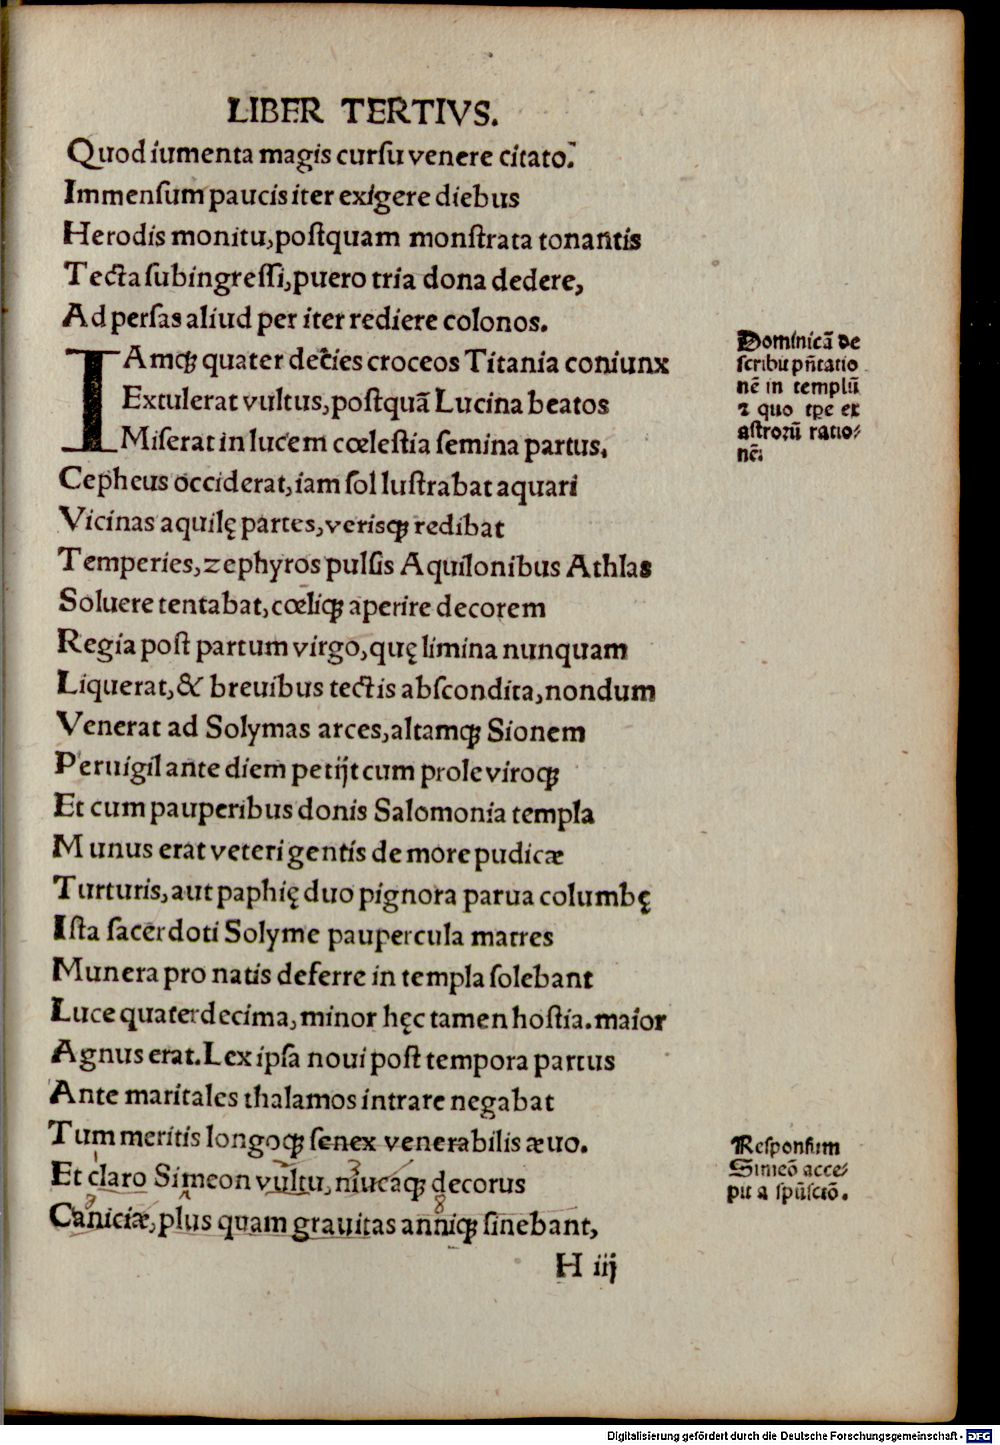 LIBER TERTIVS.
Quod iumenta magis cursu venere citato.
Immensum paucis iter exigere diebus
Herodis monitu, postquam monstrata tonantis
Tecta subingressi, puero tria dona dedere,
Ad persas aliud per iter rediere colonos.
IAmqꝫ quater decies croceos Titania coniunx
Extulerat vultus, postquã Lucina beatos
Miserat in lucem cœlestia semina partus.
Cepheus occiderat, iam sol lustrabat aquari
Vicinas aquilę partes, verisqꝫ redibat
Temperies, zephyros pulsis Aquilonibus Athlas
Soluere tentabat, cœliqꝫ aperire decorem
Regia post partum virgo, quę limina nunquam
Liquerat, & breuibus tectis abscondita, nondum
Venerat ad Solymas arces, altamqꝫ Sionem
Peruigil ante diem petijt cum prole viroqꝫ
Et cum pauperibus donis Salomonia templa
Munus erat veteri gentis de more pudicæ
Turturis, aut paphię duo pignora parua columbę
Ista sacerdoti Solyme paupercula matres
Munera pro natis deferre in templa solebant
Luce quaterdecima, minor hęc tamen hostia. maior
Agnus erat. Lex ipsa noui post tempora partus
Ante maritales thalamos intrare negabat
Tum meritis longoqꝫ senex venerabilis æuo.
Et claro Simeon vultu, niueaqꝫ decorus
Caniciæ, plus quam grauitas anniqꝫ sinebant,
H iij
Dominicã de
scribit pñtatio
nẽ in templũ
⁊ quo tꝑe ex
astrorũ ratio⸗
nẽ.
Responsum
Simeõ acce⸗
pit a spũsctõ.
Digitalisierung gefördert durch die Deutsche Forschungsgemeinschaft - DFG